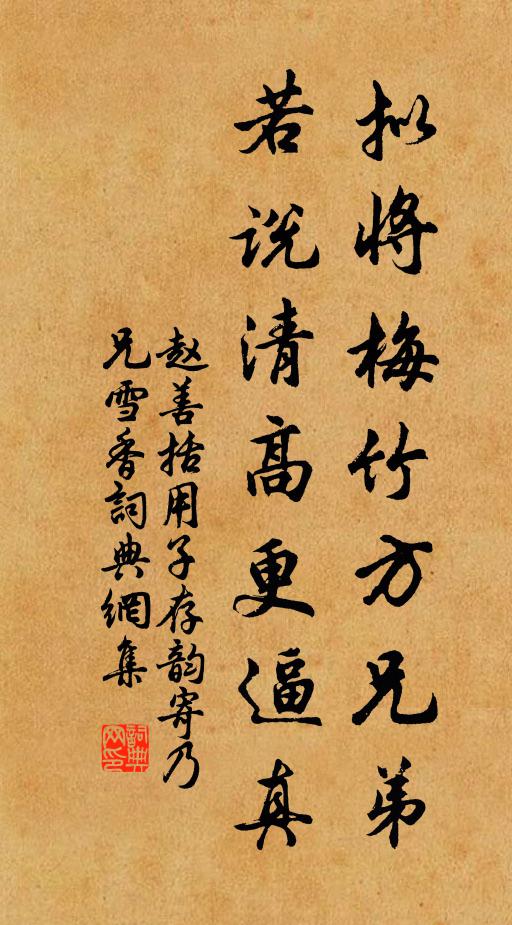 拟将梅竹方兄弟
若说清高更逼真
赵善括用子存韵寄乃
兄雪香詞典網集
詞典网印